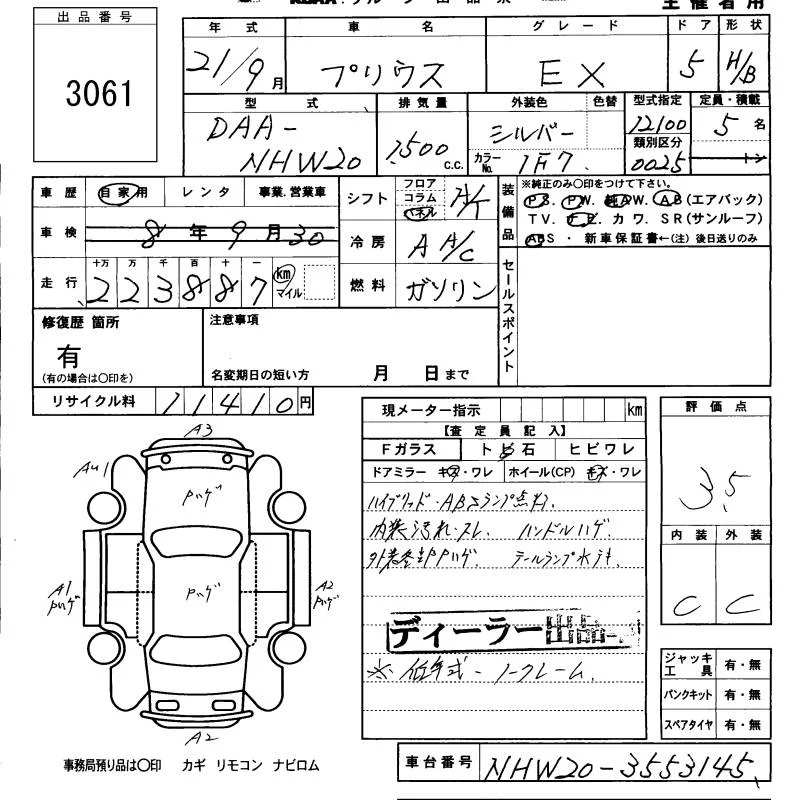 出品番号
3061
主催者用
年式 車名 グレード ドア 形状
21/9月 プリウス EX 5 H/B
型式 排気量 外装色 色替 型式指定 定員・積載
DAA-NHW20 1500 c.c. シルバー 12100 5名
カラーNo. 1F7 類別区分 0025 トン
車歴 自家用 レンタ 事業.営業車
シフト フロア コラム パネル
装備品
※純正のみ○印をつけて下さい。
P S. P W. 純A W. A B (エアバック)
T V. ナ ビ. カ ワ. S R (サンルーフ)
ABS ・ 新車保証書←(注) 後日送りのみ
車検 8年9月30
冷房 A A/C
走行 十万 万 千 百 十 一
223887 km マイル
燃料 ガソリン
セールスポイント
修復歴 箇所
有
(有の場合は○印を)
注意事項
名変期日の短い方 月 日まで
リサイクル料 11410円
現メーター指示 km
評価点
3.5
【査定員記入】
Fガラス トビ石 ヒビワレ
ドアミラー キズ・ワレ ホイール(CP) キズ・ワレ
ハイブリッド・ABSランプ点灯.
内装汚れ・スレ ハンドルハゲ
外装各部Pハゲ テールランプ水
内装 外装
C C
ディーラー出品
※低年式・ノークレーム.
A3
AU1
Pハゲ
A1
Pハゲ
Pハゲ
A2
Pハゲ
A2
ジャッキ工具 有・無
パンクキット 有・無
スペアタイヤ 有・無
事務局預り品は○印 カギ リモコン ナビロム
車台番号 NHW20-3553145